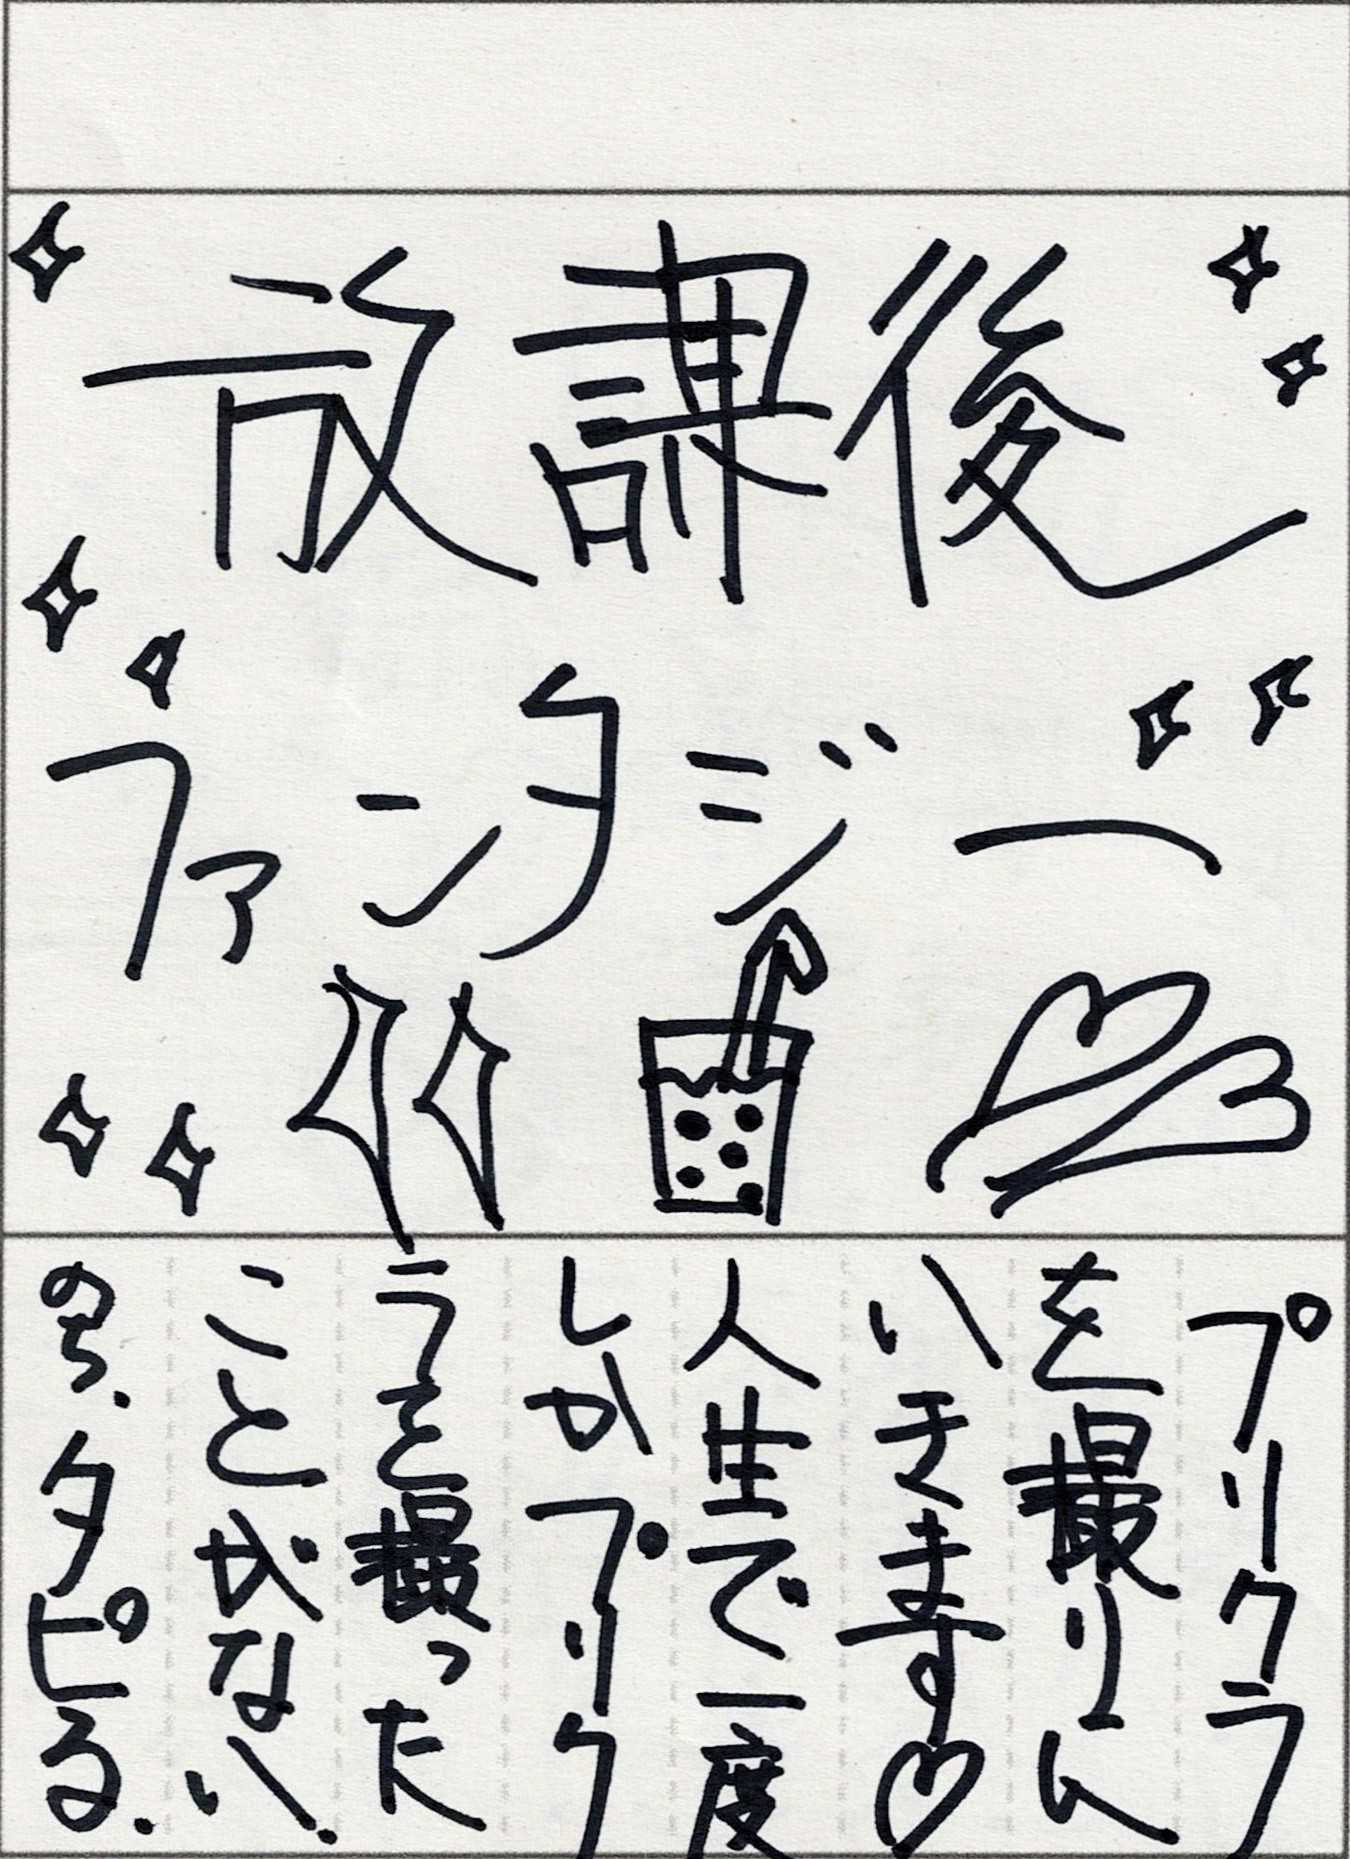 放課後
ファンタジー
プリクラ
を撮りに
いきます♡
人生で一度
しかプリク
ラを撮った
ことがない.
のち、タピる.